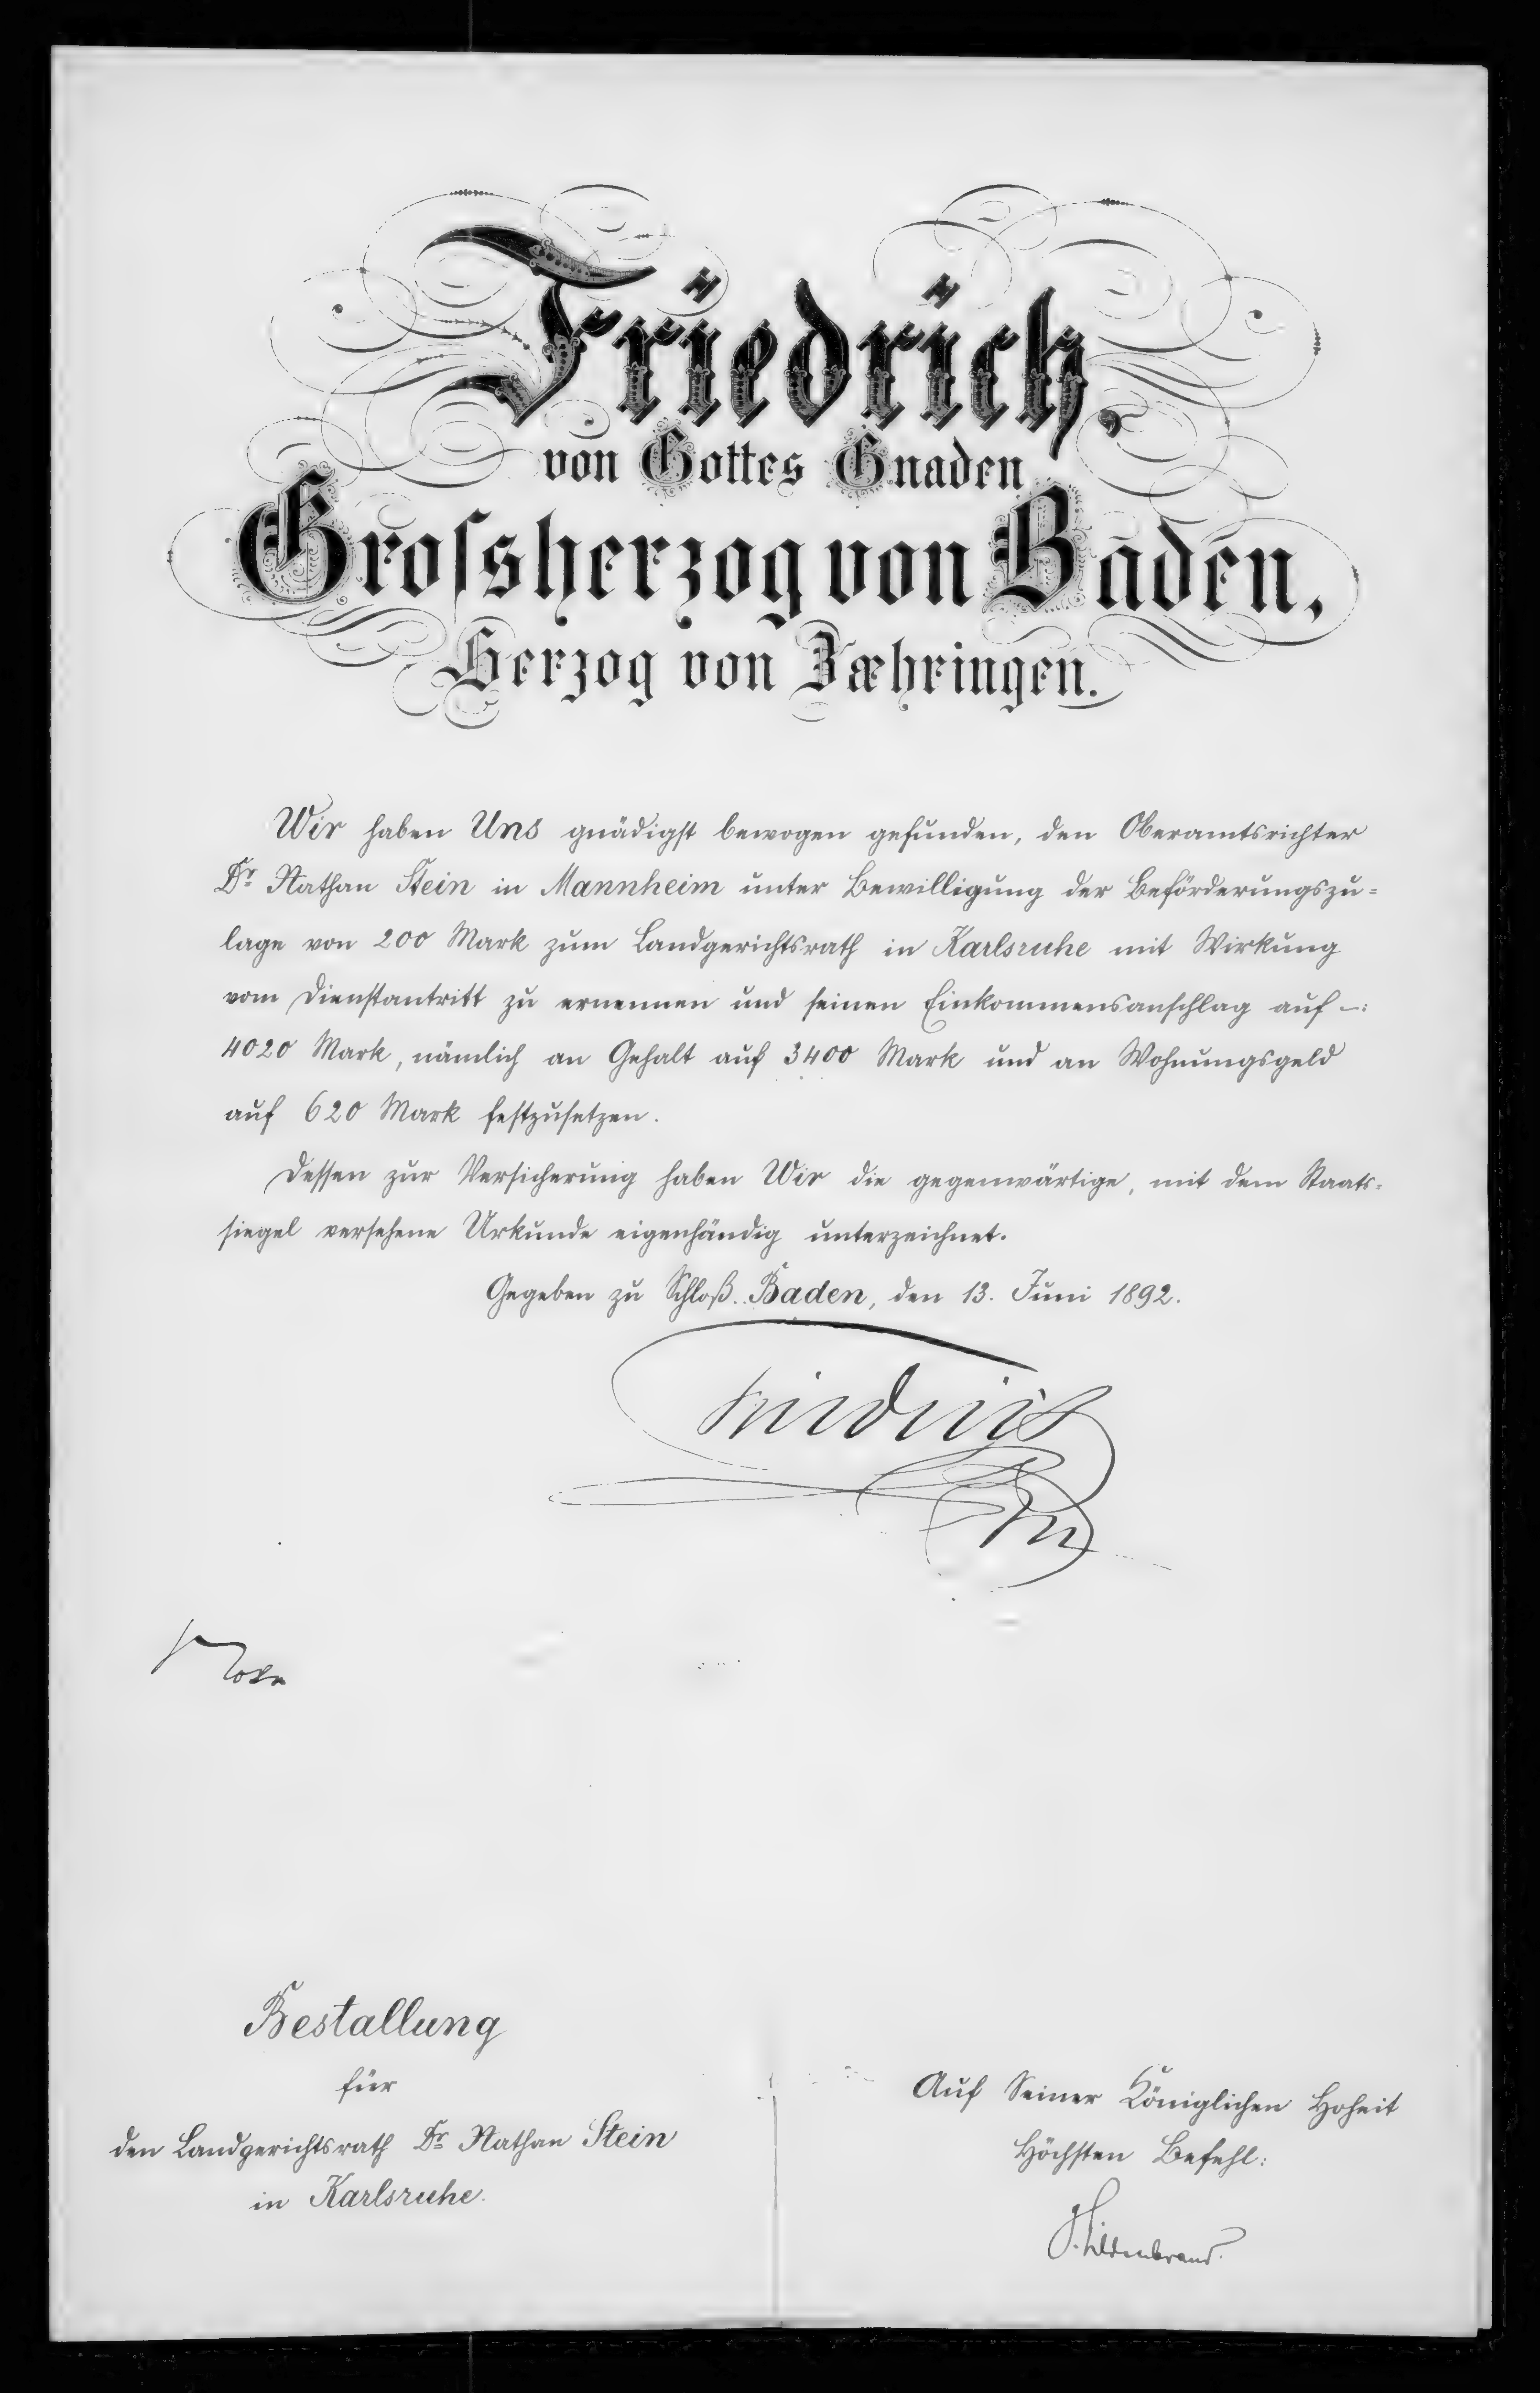 Friedrich,
von Gottes Gnaden
Grossherzog von Baden,
Herzog von Zæhringen.
Wir haben Uns gnädigst bewogen gefunden, den Oberamtsrichter
Dr. Nathan Stein in Mannheim unter Bewilligung der Beförderungszu=
lage von 200 Mark zum Landgerichtsrath in Karlsruhe mit Wirkung
vom Dienstantritt zu ernennen und seinen Einkommensanschlag auf –:
4020 Mark, nämlich an Gehalt auf 3400 Mark und an Wohnungsgeld
auf 620 Mark festzusetzen.
Dessen zur Versicherung haben Wir die gegenwärtige, mit dem Staats=
siegel versehene Urkunde eigenhändig unterzeichnet.
Gegeben zu Schloß Baden, den 13. Juni 1892.
Friedrich
Nokk
Bestallung
für
den Landgerichtsrath Dr. Nathan Stein
in Karlsruhe.
Auf Seiner Königlichen Hoheit
Höchsten Befehl:
Hildenbrand.